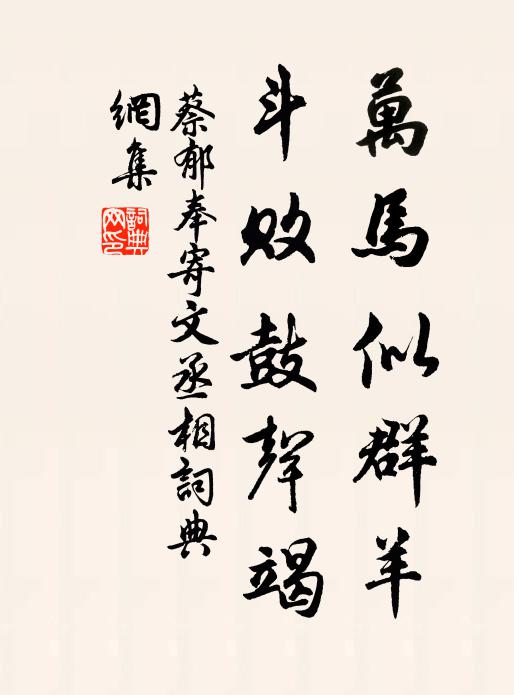 萬馬似群羊
斗败鼓聲竭
蔡郁奉寄文丞相詞典
網集
詞典
网印